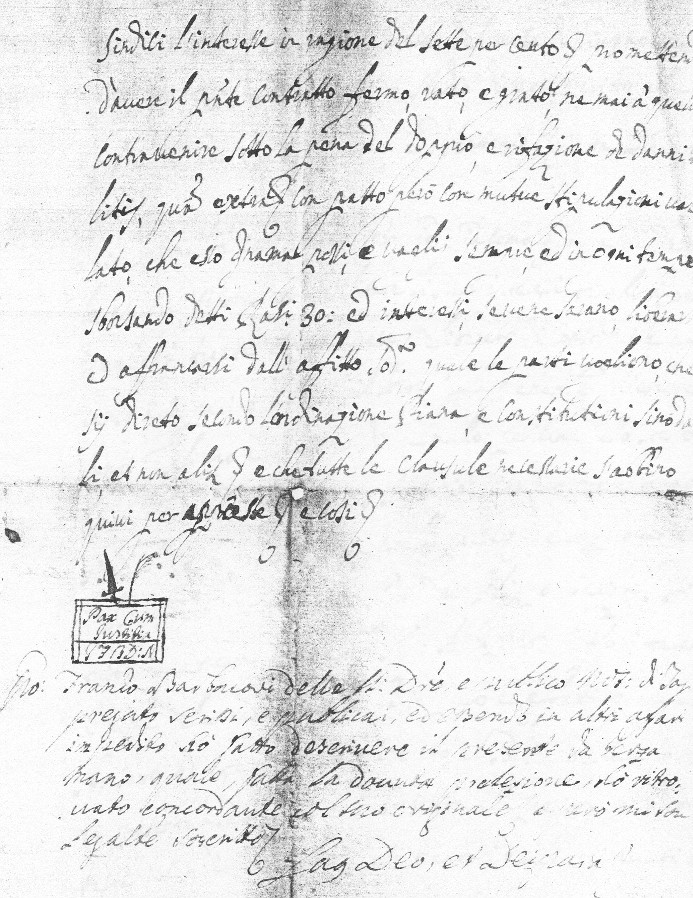 Sindici l'interesse in ragione del sette per cento promettendo
d'avere il pñte Contratto fermo, rato, e grato, ne mai à quello
contravenire sotto la pena del doppio, e rifazione de danni
litis, extra con patto però con mutue stipulazioni
lato, che esso possi, e vagli sempre, ed in ogni tempo
sborsando detti 30: ed interessi, se vene sarano, libera
d affrancarsi dall'affitto sodº. quale le parti voglieno, che
sij direto secondo l'ordinazione e Constitutioni sinoda
li et non alir e che tutte le Clausule necessarie s'abbino
quivi per apresse e cosi
Pax Cum
Iustitia
Franco Barbacovi delle e publico Not: di
pregato scrissi, e publicai, ed essendo in altri affari
impedito hò fatto descrivere il presente da terza
mano, quale, fatta la dovuta , hò ritro,
vato concordante col suo originale, e perciò mi son
legalte soscritto
Laus Deo, et